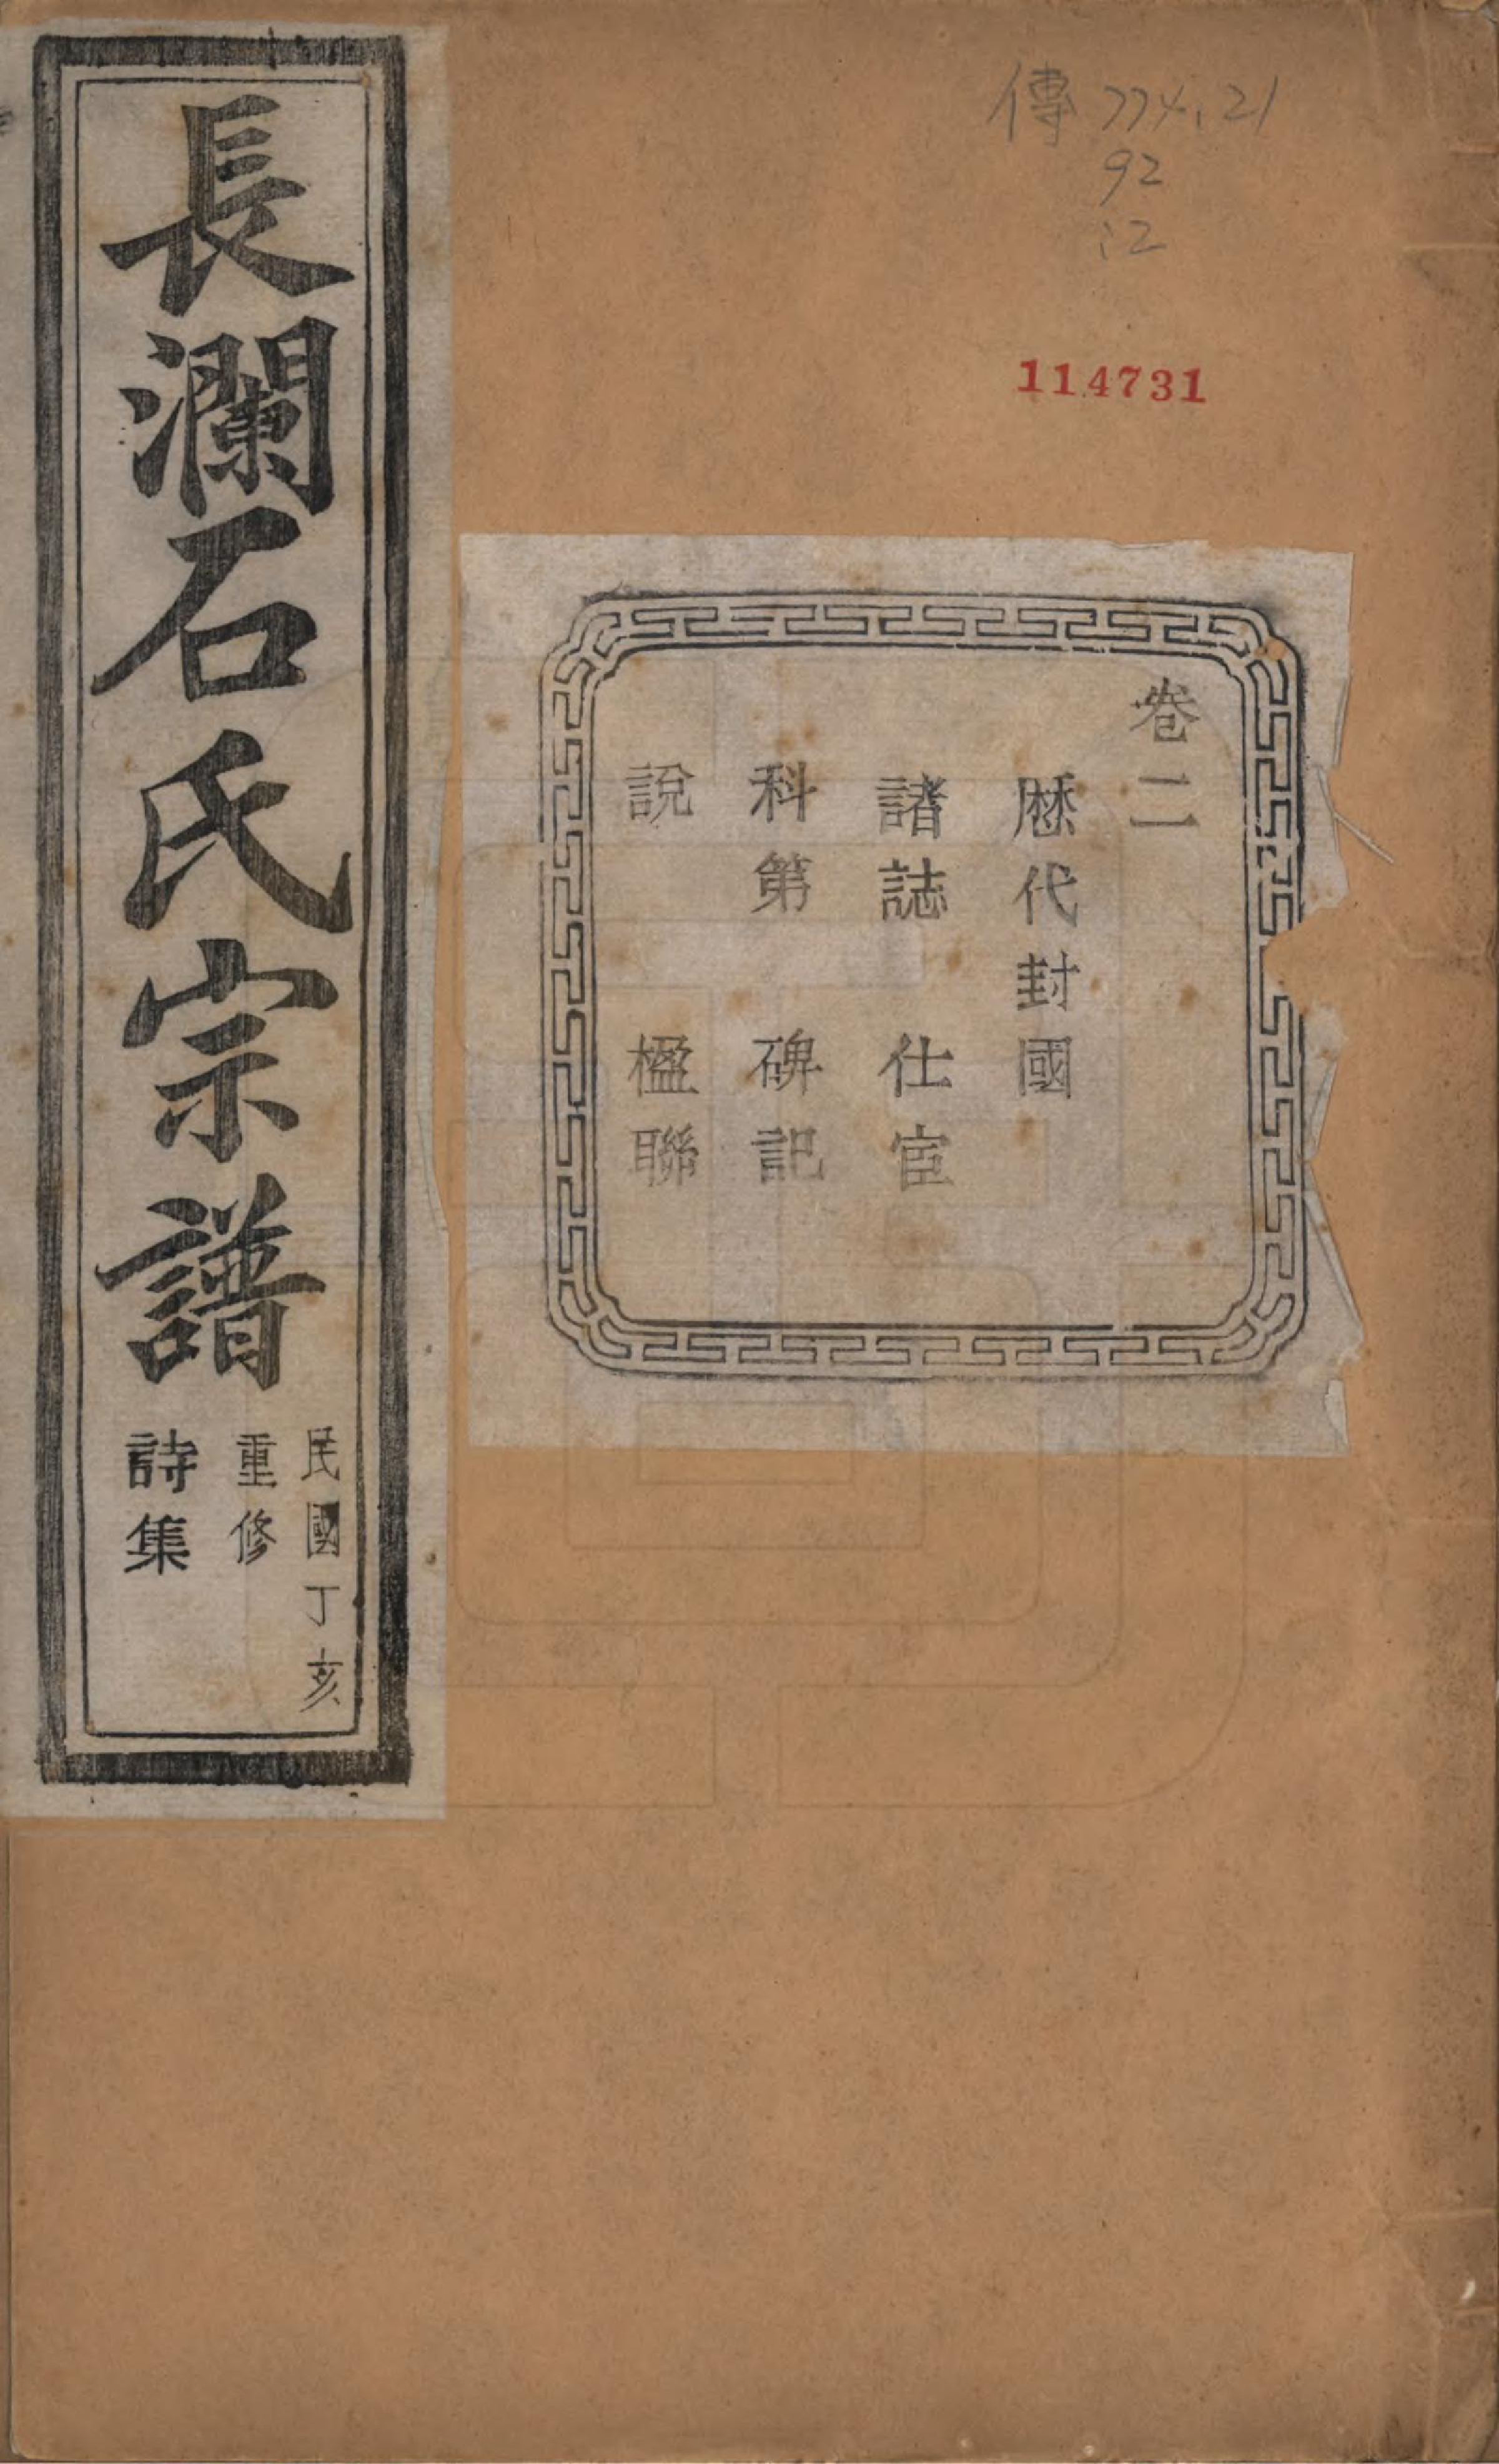 傳 774.21
92
:2
114731
卷二
歷代封國
諸誌 仕宦
科第 碑記
說 楹聯
長瀾石氏宗譜
民國丁亥
重修
詩集